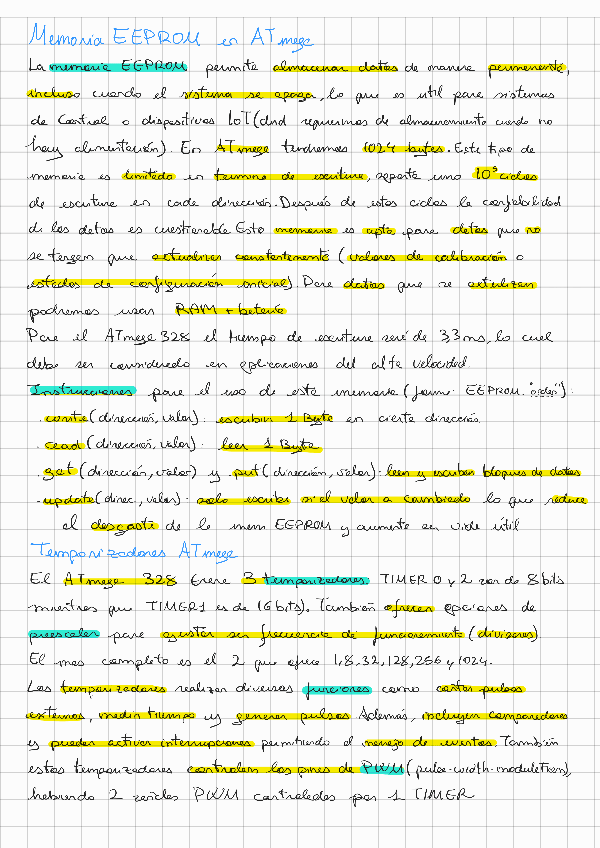 Memoria EEPROM en ATmega
La memoria EEPROM permite almacenar datos de manera permanente,
incluso cuando el sistema se apaga, lo que es util para sistemas
de Control o dispositivos IoT (dnd requerimos de almacenamiento cuando no
hay alimentación). En ATmega tendremos 1024 bytes. Este tipo de
memoria es limitado en termino de escritura, soporta unos 10⁵ ciclos
de escritura en cada dirección. Después de estos ciclos la confiabilidad
de los datos es cuestionable. Esta memoria es apta para datos que no
se tengan que actualizar constantemente (valores de calibración o
estados de configuración inicial). Para datos que se actualizan
podremos usar RAM + batería
Para el ATmega 328 el tiempo de escritura será de 3,3 ms, lo cual
debe ser considerado en aplicaciones del alta velocidad.
Instrucciones para el uso de esta memoria (form: EEPROM. "orden").
. write (dirección, valor): escribir 1 Byte en cierta dirección.
. read (dirección, valor): leer 1 Byte
. get (dirección, valor) y put (dirección, valor): leen y escriben bloques de datos
. update (direc, valor): solo escribe si el valor a cambiado lo que reduce
el desgaste de la mem EEPROM y aumenta su vida útil
Temporizadores ATmega
El ATmega 328 tiene 3 temporizadores. TIMER 0 y 2 son de 8 bits
mientras que TIMER1 es de 16 bits). También ofrecen opciones de
preescaler para ajustar su frecuencia de funcionamiento (divisores)
El mas completo es el 2 que ofrece 1, 8, 32, 128, 256 y 1024.
Los temporizadores realizan diversas funciones como contar pulsos
externos, medir tiempo y generar pulsos. Además, incluyen comparadores
y pueden activar interrupciones permitiendo el manejo de eventos. También
estos temporizadores controlan los pines de PWM (pulse-width-modulation),
habiendo 2 señales PWM controladas por 1 TIMER